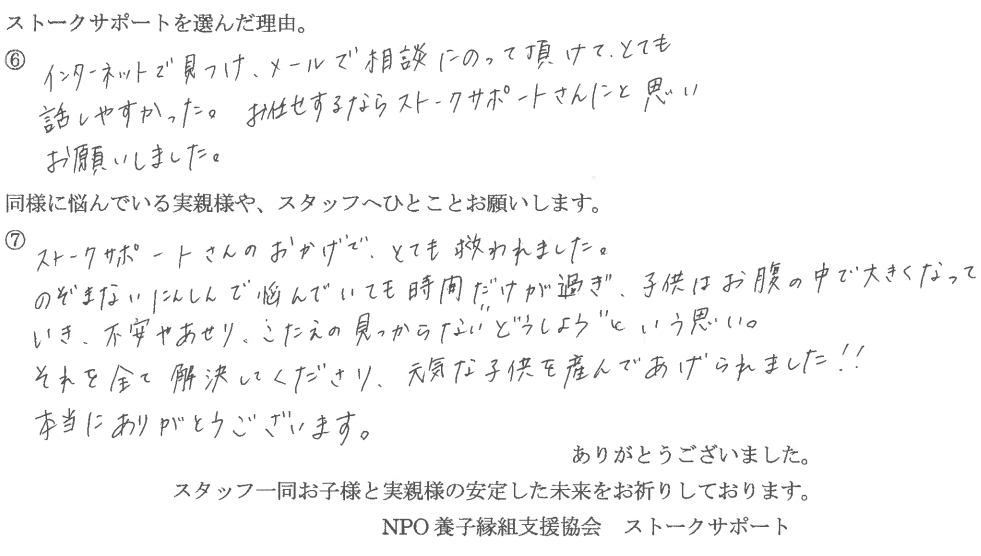 ストークサポートを選んだ理由。
⑥
インターネットで見つけ、メールで相談にのって頂けて、とても
話しやすかった。 お任せするならストークサポートさんにと思い
お願いしました。
同様に悩んでいる実親様や、スタッフへひとことお願いします。
⑦
ストークサポートさんのおかげで、とても救われました。
のぞまないにんしんで悩んでいても時間だけが過ぎ、子供はお腹の中で大きくなって
いき、不安やあせり、こたえの見つからない"どうしよう"という思い。
それを全て解決してくださり、元気な子供を産んであげられました!!
本当にありがとうございます。
ありがとうございました。
スタッフ一同お子様と実親様の安定した未来をお祈りしております。
NPO 養子縁組支援協会 ストークサポート